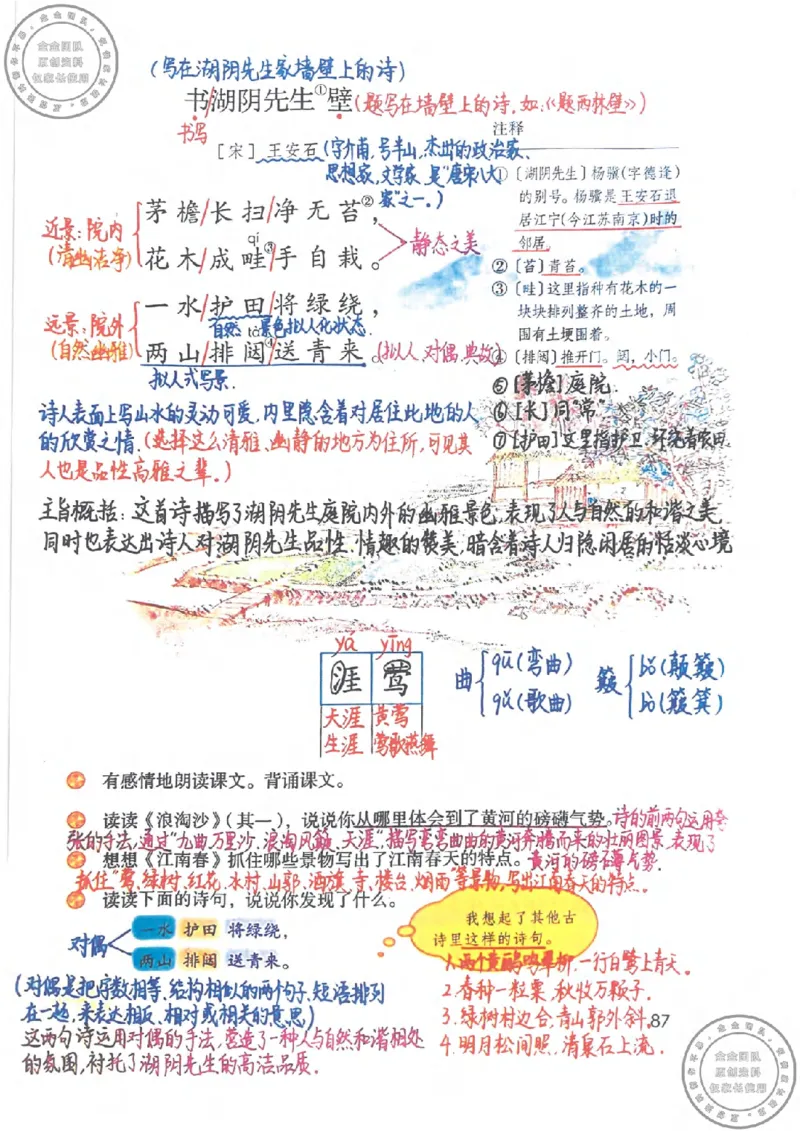 (写在湖阴先生家墙壁上的诗)
书/湖阴先生①壁(题写在墙壁上的诗.如:《题西林壁》)
书写
注释
[宋] 王安石(字介甫,号半山,杰出的政治家、
思想家,文学家,是"唐宋八大
家"之一。)
①〔湖阴先生〕杨骥(字德逢)
的别号。杨骥是王安石退
居江宁(今江苏南京)时的
邻居。
②〔苔〕青苔。
③〔畦〕这里指种有花木的一
块块排列整齐的土地,周
围有土埂围着。
④〔排闼〕推开门。闼,小门。
⑤[茅檐]庭院.
⑥[长]同"常"
⑦[护田]这里指护卫.环绕着农田
近景:院内
(清幽洁净)
茅檐/长扫/净无苔②,
qí
花木/成畦③/手自栽。
静态之美
远景:院外
(自然幽雅)
一水/护田/将绿绕,
自然景色拟人化状态.
tà
两山/排闼④/送青来。(拟人.对偶.典故)
拟人式写景.
诗人表面上写山水的灵动可爱.内里隐含着对居住此地的人
的欣赏之情.(选择这么清雅.幽静的地方为住所,可见其
人也是品性高雅之辈.)
主旨概括:这首诗描写了湖阴先生庭院内外的幽雅景色,表现了人与自然的和谐之美.
同时也表达出诗人对湖阴先生品性.情趣的赞美,暗含着诗人归隐闲居的恬淡心境
yá yīng
涯 莺
天涯 黄莺
生涯 莺歌燕舞
曲 qū(弯曲)
qǔ(歌曲)
簸 bǒ(颠簸)
bò(簸箕)
有感情地朗读课文。背诵课文。
读读《浪淘沙》(其一),说说你从哪里体会到了黄河的磅礴气势。诗的前两句运用夸
张的手法,通过"九曲.万里沙.浪淘风簸.天涯"描写弯弯曲曲的黄河奔腾而来的壮丽图景.表现了
黄河的磅礴气势.
想想《江南春》抓住哪些景物写出了江南春天的特点。
抓住"莺.绿树.红花.水村.山郭.酒旗.寺.楼台.烟雨"等景物,写出江南春天的特点。
读读下面的诗句,说说你发现了什么。
对偶
一水 护田 将绿绕,
两山 排闼 送青来。
我想起了其他古
诗里这样的诗句。
1.两个黄鹂鸣翠柳.一行白鹭上青天。
2.春种一粒粟,秋收万颗子.
3.绿树村边合,青山郭外斜.
4.明月松间照.清泉石上流.
(对偶是把字数相等.结构相似的两个句子.短语排列
在一起,来表达相反.相对或相关的意思)
这两句诗运用对偶的手法,营造了一种人与自然和谐相处
的氛围,衬托了湖阴先生的高洁品质.
87